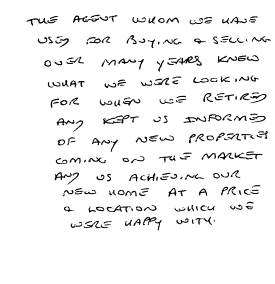 THE AGENT WHOM WE HAVE
USED FOR BUYING & SELLING
OVER MANY YEARS KNEW
WHAT WE WERE LOOKING
FOR WHEN WE RETIRED
AND KEPT US INFORMED
OF ANY NEW PROPERTIES
COMING ON THE MARKET
AND US ACHIEVING OUR
NEW HOME AT A PRICE
& LOCATION WHICH WE
WERE HAPPY WITH.